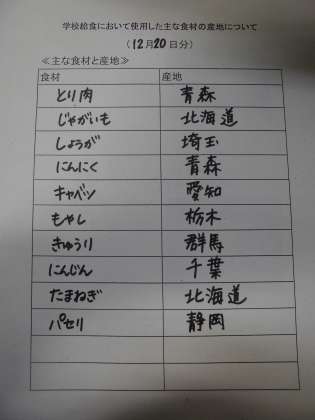 学校給食において使用した主な食材の産地について
(12月20日分)
≪主な食材と産地≫
食材 産地
とり肉 青森
じゃがいも 北海道
しょうが 埼玉
にんにく 青森
キャベツ 愛知
もやし 栃木
きゅうり 群馬
にんじん 千葉
たまねぎ 北海道
パセリ 静岡